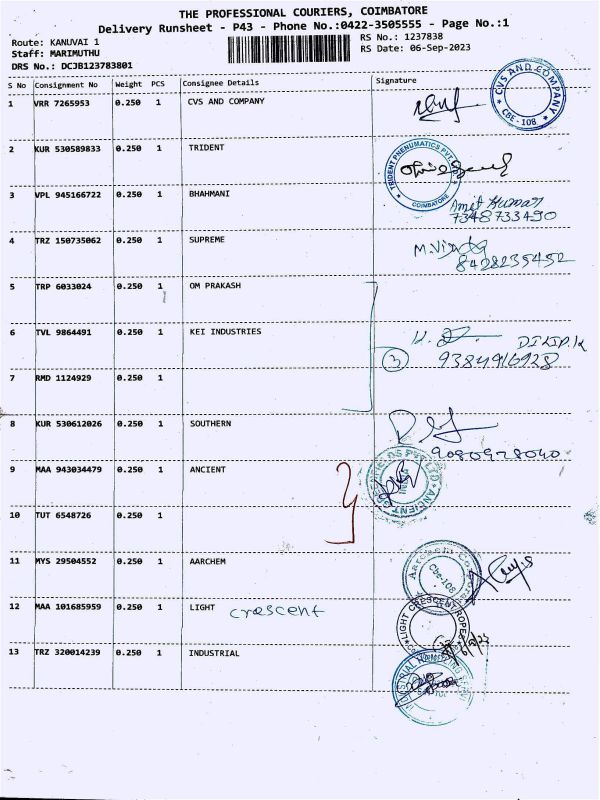 THE PROFESSIONAL COURIERS, COIMBATORE
Delivery Runsheet - P43 - Phone No.:0422-3505555 - Page No.:1
Route: KANUVAI 1
Staff: MARIMUTHU
DRS No.: DCJB123783801
RS No.: 1237838
RS Date: 06-Sep-2023
S No Consignment No Weight PCS Consignee Details Signature
1 VRR 7265953 0.250 1 CVS AND COMPANY
CVS AND COMPANY
CBE-108
2 KUR 530589833 0.250 1 TRIDENT
TRIDENT PNEUMATICS PVT
COIMBATORE
3 VPL 945166722 0.250 1 BHAHMANI
Amit Kumar
7348733490
4 TRZ 150735062 0.250 1 SUPREME
8428235452
5 TRP 6033024 0.250 1 OM PRAKASH
6 TVL 9864491 0.250 1 KEI INDUSTRIES
3 DILIP.K
9384916928
7 RMD 1124929 0.250 1
8 KUR 530612026 0.250 1 SOUTHERN
9080928040
9 MAA 943034479 0.250 1 ANCIENT
PVT LTD ANCIENT
10 TUT 6548726 0.250 1
11 MYS 29504552 0.250 1 AARCHEM
Aarchem
Cbe-108
12 MAA 101685959 0.250 1 LIGHT crescent
LIGHT CRESCENT ROPES
13 TRZ 320014239 0.250 1 INDUSTRIAL
INDUSTRIAL